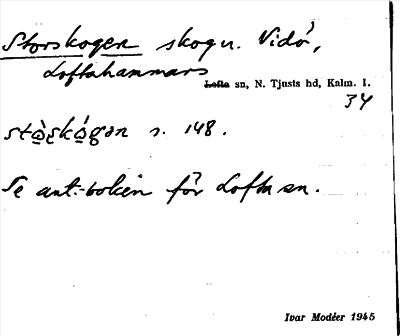 Storskogen skogn. Vidö,
Loftahammars
Lofta sn, N. Tjusts hd, Kalm. l.
34
stὼʂkώgən s. 148.
Se ant.-boken för Lofta sn.
Ivar Modéer 1945